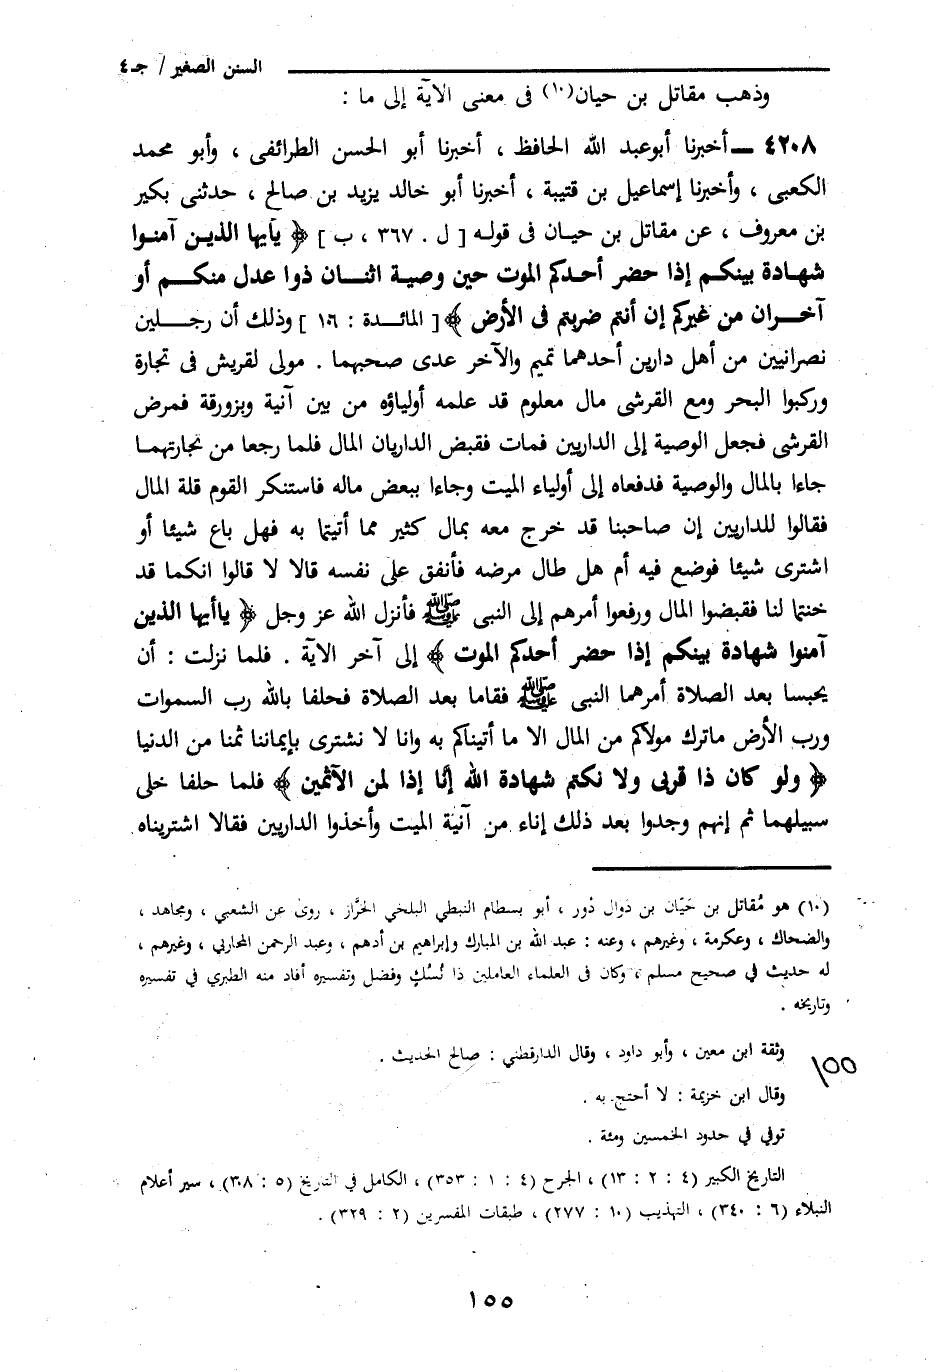 السنن الصغير / جـ٤
وذهب مقاتل بن حيان(١٠) فى معنى الآية إلى ما :
٤٢٠٨ ــ أخبرنا أبوعبد الله الحافظ ، أخبرنا أبو الحسن الطرائفى ، وأبو محمد
الكعبى ، وأخبرنا إسماعيل بن قتيبة ، أخبرنا أبو خالد يزيد بن صالح ، حدثنى بكير
بن معروف ، عن مقاتل بن حيان فى قوله [ ل . ٣٦٧ ، ب ] ﴿ يأيها الذين آمنوا
شهادة بينكم إذا حضر أحدكم الموت حين وصية اثنان ذوا عدل منكم أو
آخران من غيركم إن أنتم ضربتم فى الأرض ﴾ [ المائدة : ١٠٦ ] وذلك أن رجلين
نصرانيين من أهل دارين أحدهما تميم والآخر عدى صحبهما . مولى لقريش فى تجارة
وركبوا البحر ومع القرشى مال معلوم قد علمه أولياؤه من بين آنية وبزورقة فمرض
القرشى فجعل الوصية إلى الداريين فمات فقبض الداريان المال فلما رجعا من تجارتهما
جاءا بالمال والوصية فدفعاه إلى أولياء الميت وجاءا ببعض ماله فاستنكر القوم قلة المال
فقالوا للداريين إن صاحبنا قد خرج معه بمال كثير مما أتيتما به فهل باع شيئا أو
اشترى شيئا فوضع فيه أم هل طال مرضه فأنفق على نفسه قالا لا قالوا انكما قد
خنتما لنا فقبضوا المال ورفعوا أمرهم إلى النبى ﷺ فأنزل الله عز وجل ﴿ ياأيها الذين
آمنوا شهادة بينكم إذا حضر أحدكم الموت ﴾ إلى آخر الآية . فلما نزلت : أن
يحبسا بعد الصلاة أمرهما النبى ﷺ فقاما بعد الصلاة فحلفا بالله رب السموات
ورب الأرض ماترك مولاكم من المال الا ما أتيناكم به وانا لا نشترى بإيماننا ثمنا من الدنيا
﴿ ولو كان ذا قربى ولا نكتم شهادة الله إنا إذا لمن الآثمين ﴾ فلما حلفا خلى
سبيلهما ثم إنهم وجدوا بعد ذلك إناء من آنية الميت وأخذوا الداريين فقالا اشتريناه
(١٠) هو مُقاتل بن حَيَّان بن دَوال دُور ، أبو بسطام النبطي البلخي الخرَّاز ، روى عن الشعبي ، ومجاهد ،
والضحاك ، وعكرمة ، وغيرهم ، وعنه : عبد الله بن المبارك وإبراهيم بن أدهم ، وعبد الرحمن المحاربي ، وغيرهم ،
له حديث في صحيح مسلم ، وكان فى العلماء العاملين ذا نُسُكٍ وفضل وتفسيره أفاد منه الطبري في تفسيره
وتاريخه .
وثقة ابن معين ، وأبو داود ، وقال الدارقطني : صالح الحديث .
١٥٥
وقال ابن خزيمة : لا أحتج به .
توفي في حدود الخمسين ومئة .
التاريخ الكبير (٤ : ٢ : ١٣) ، الجرح (٤ : ١ : ٣٥٣) ، الكامل في التاريخ (٥ : ٣٠٨) ، سير أعلام
النبلاء (٦ : ٣٤٠) ، التهذيب (١٠ : ٢٧٧) ، طبقات المفسرين (٢ : ٣٢٩) .
١٥٥